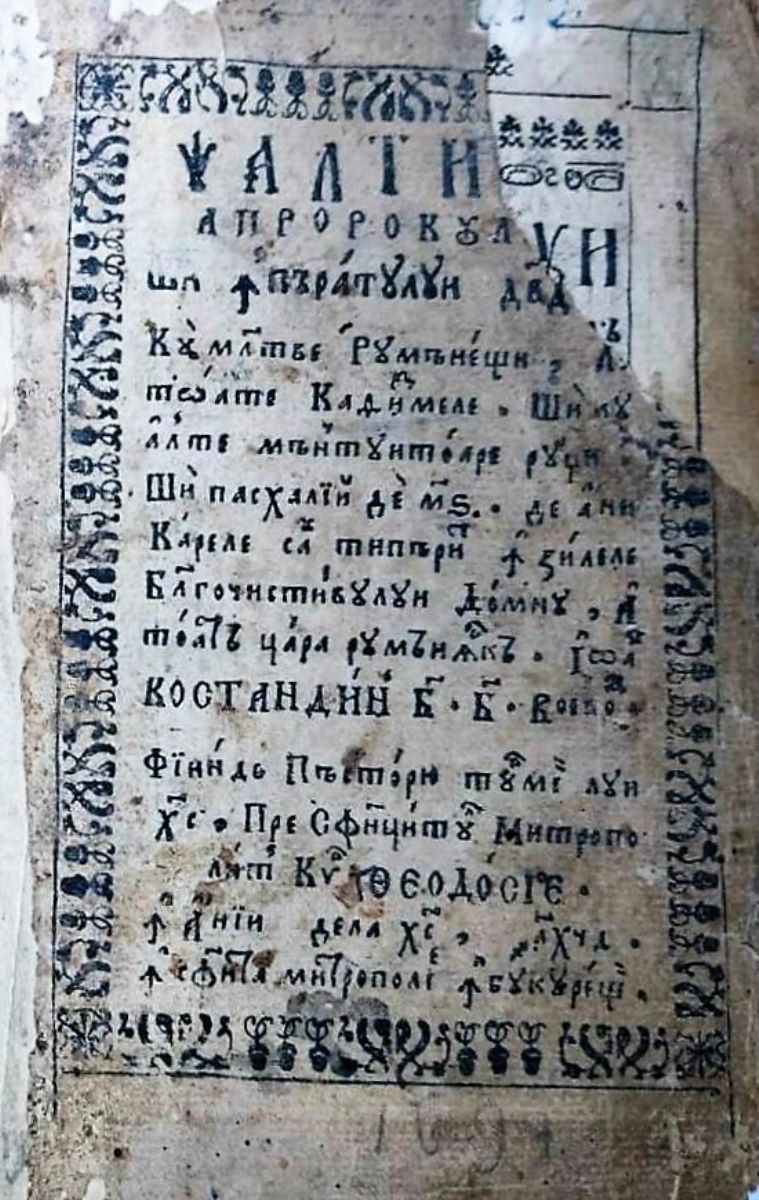 ѰАЛТИ
АПРОРОКꙋЛꙋИ
ши ꙟпъра́тꙋлꙋи дв҃д
Кꙋ҆ мл҃тве Рꙋмѣне́щи , Л
тѡ́ате Кади́меле . Шѝ лꙋ
а҆́лте мѣ́нтꙋитоаре рꙋ́ци .
Шѝ пасхалі́й дѐ м҃ѕ . де а҆́ни
Ка́реле са́ꙋ типѣри́т ꙟ҆ зи́леле
Бл҃гочисти́вꙋлꙋи До́мнꙋ , А҆
то́атъ ца́ра рꙋмънѣ́скъ . І҆ѡа҆
КОСТАНДИ́Н Б҃ . Б҃ . Воево
Фїи́ндь Пъсто́рю тꙋ́рмеї лꙋи
Хс҃ . Пре Сфинци́тꙋл Митропо
ли́т Кѵ҆р ѲЕОДО́СІЕ .
ꙟ҆ А҆́нїи дела хс҃ , ҂ахчд .
ꙟ҆ сфи́нта митрополїе ꙟ҆ бꙋкꙋре́щй .